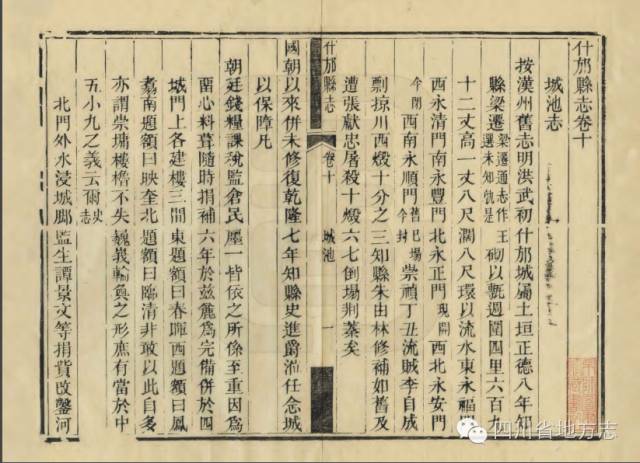 什邡縣志卷十
城池志
按漢州舊志明洪武初什邡城屬土垣正德八年知
縣梁遷梁遷通志作王選未知孰是砌以甎週圍四里六百九
十二丈高一丈八尺濶八尺環以流水東永福門
西永清門南永豐門北永正門現開西北永安門
今閉西南永順門舊已塲今封崇禎丁丑流賊李自成
剽掠川西燬十分之三知縣朱由林修補如舊及
遭張献忠屠殺十燬六七倒塌荆蓁矣
國朝以來併未修復乾隆七年知縣史進爵涖任念城
以保障凡
什邡縣志 卷十 城池 一
朝廷錢糧課稅監倉民廛一皆依之所係至重因爲
畱心料葺隨時捐補六年於兹麄為完備併於四
城門上各建樓三間東題額曰春暉西題額曰鳳
翥南題額曰映奎北題額曰臨清非敢以此自多
亦謂崇墉樓櫓不失巍峩輪奐之形庶有當於中
五小九之義云爾史志
北門外水浸城脚監生譚景文等捐貲改鑿河
四川省地方志